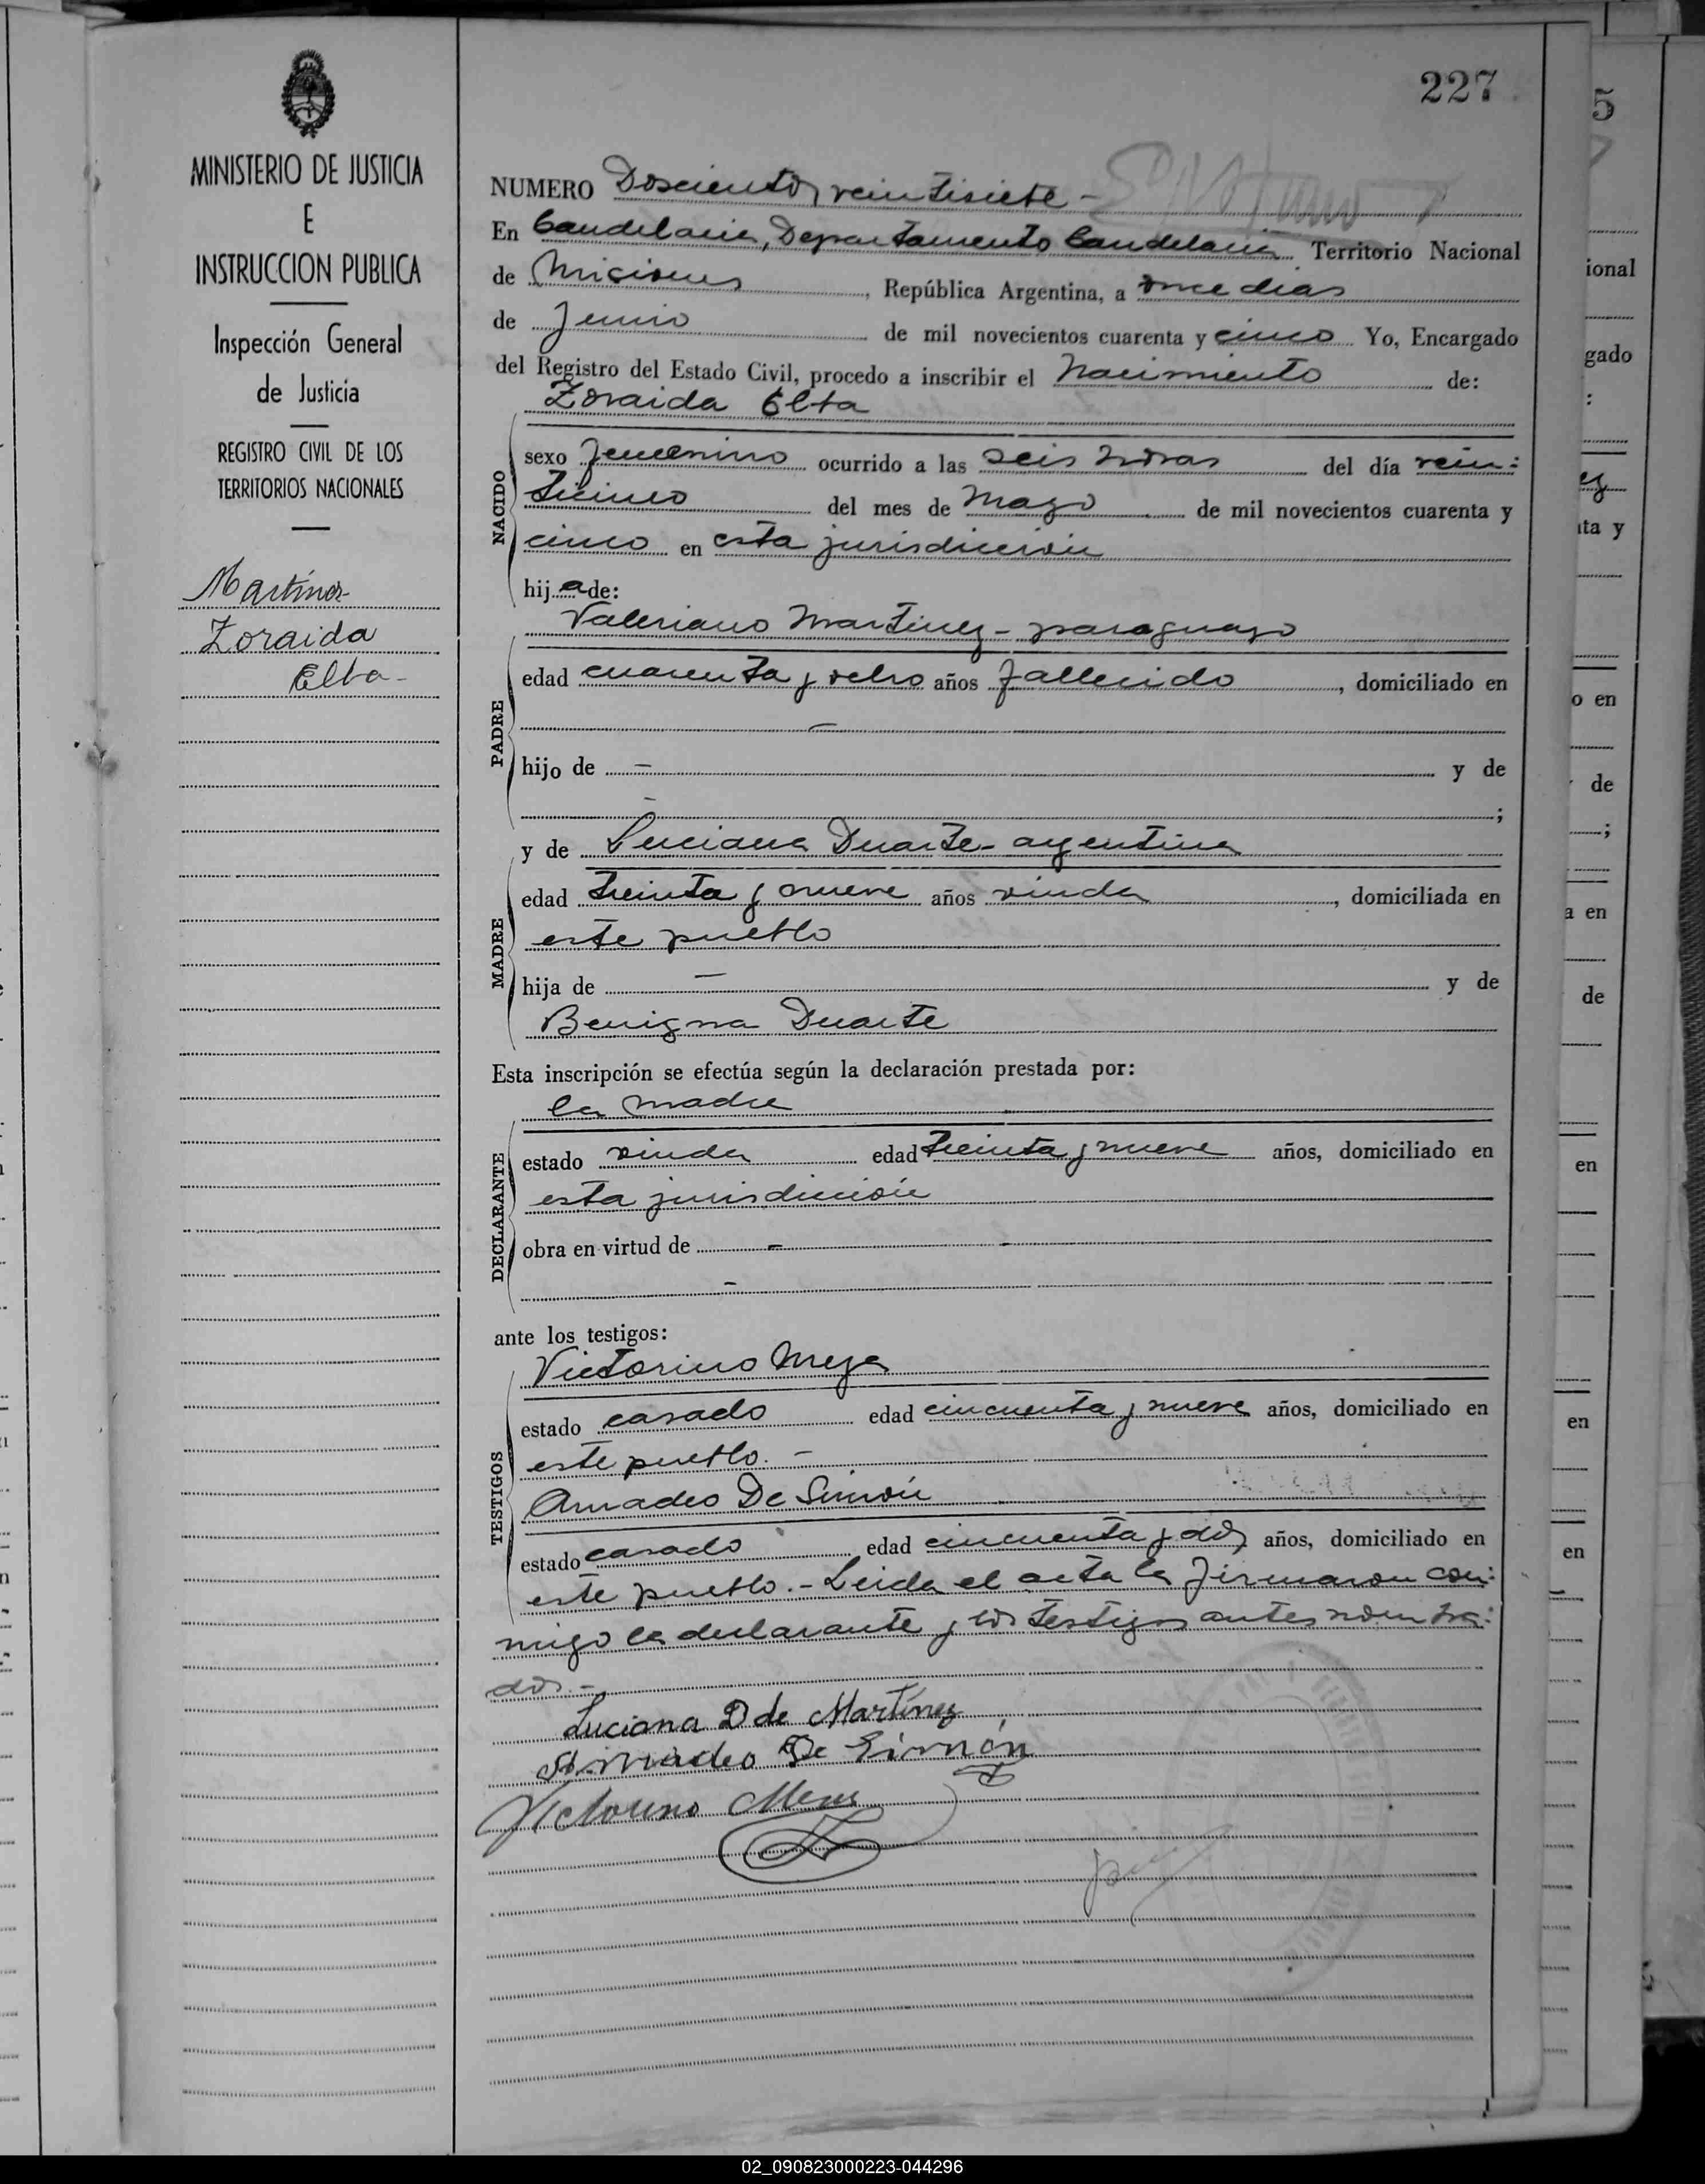 227
MINISTERIO DE JUSTICIA
E
INSTRUCCION PUBLICA
Inspección General
de Justicia
REGISTRO CIVIL DE LOS
TERRITORIOS NACIONALES
Martínez
Zoraida
Elba-
NUMERO Doscientos veintisiete -
En Candelaria, Departamento Candelaria Territorio Nacional
de Misiones, República Argentina, a once dias
de Junio de mil novecientos cuarenta y cinco Yo, Encargado
del Registro del Estado Civil, procedo a inscribir el Nacimiento de:
Zoraida Elba
NACIDO
sexo femenino ocurrido a las seis horas del día vein:
ticinco del mes de Mayo de mil novecientos cuarenta y
cinco en esta jurisdiccion
hija de:
Valeriano Martinez - paraguayo
PADRE
edad cuarenta y ocho años fallecido, domiciliado en
—
hijo de — y de
— ;
y de Luciana Duarte - argentina
MADRE
edad treinta y nueve años viuda, domiciliada en
este pueblo
hija de — y de
Benigna Duarte
Esta inscripción se efectúa según la declaración prestada por:
la madre
DECLARANTE
estado viuda edad treinta y nueve años, domiciliado en
esta jurisdicción
obra en virtud de -
-
ante los testigos:
Victorino Meza
TESTIGOS
estado casado edad cincuenta y nueve años, domiciliado en
este pueblo. -
Amadeo De Simón
estado casado edad cincuenta y dos años, domiciliado en
este pueblo. - Leida el acta la firmaron con:
migo la declarante y los testigos antes nombra:
dos. -
Luciana D de Martínez
Amadeo De Simón
Victorino Meza
5
ional
gado
:
ez
nta y
o en
de
;
a en
de
en
en
en
02_090823000223-044296